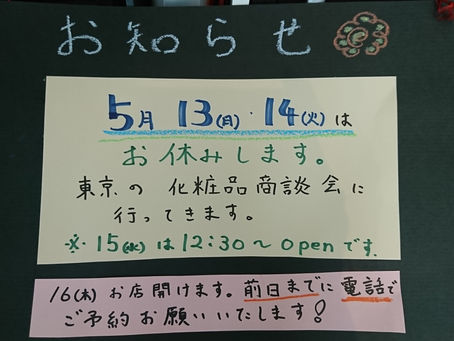 お知らせ
5月 13(月)・14(火)は
お休みします。
東京の 化粧品商談会に
行ってきます。
※15(水)は12:30〜openです.
16(木)お店開けます。前日までに電話で
ご予約お願いいたします!